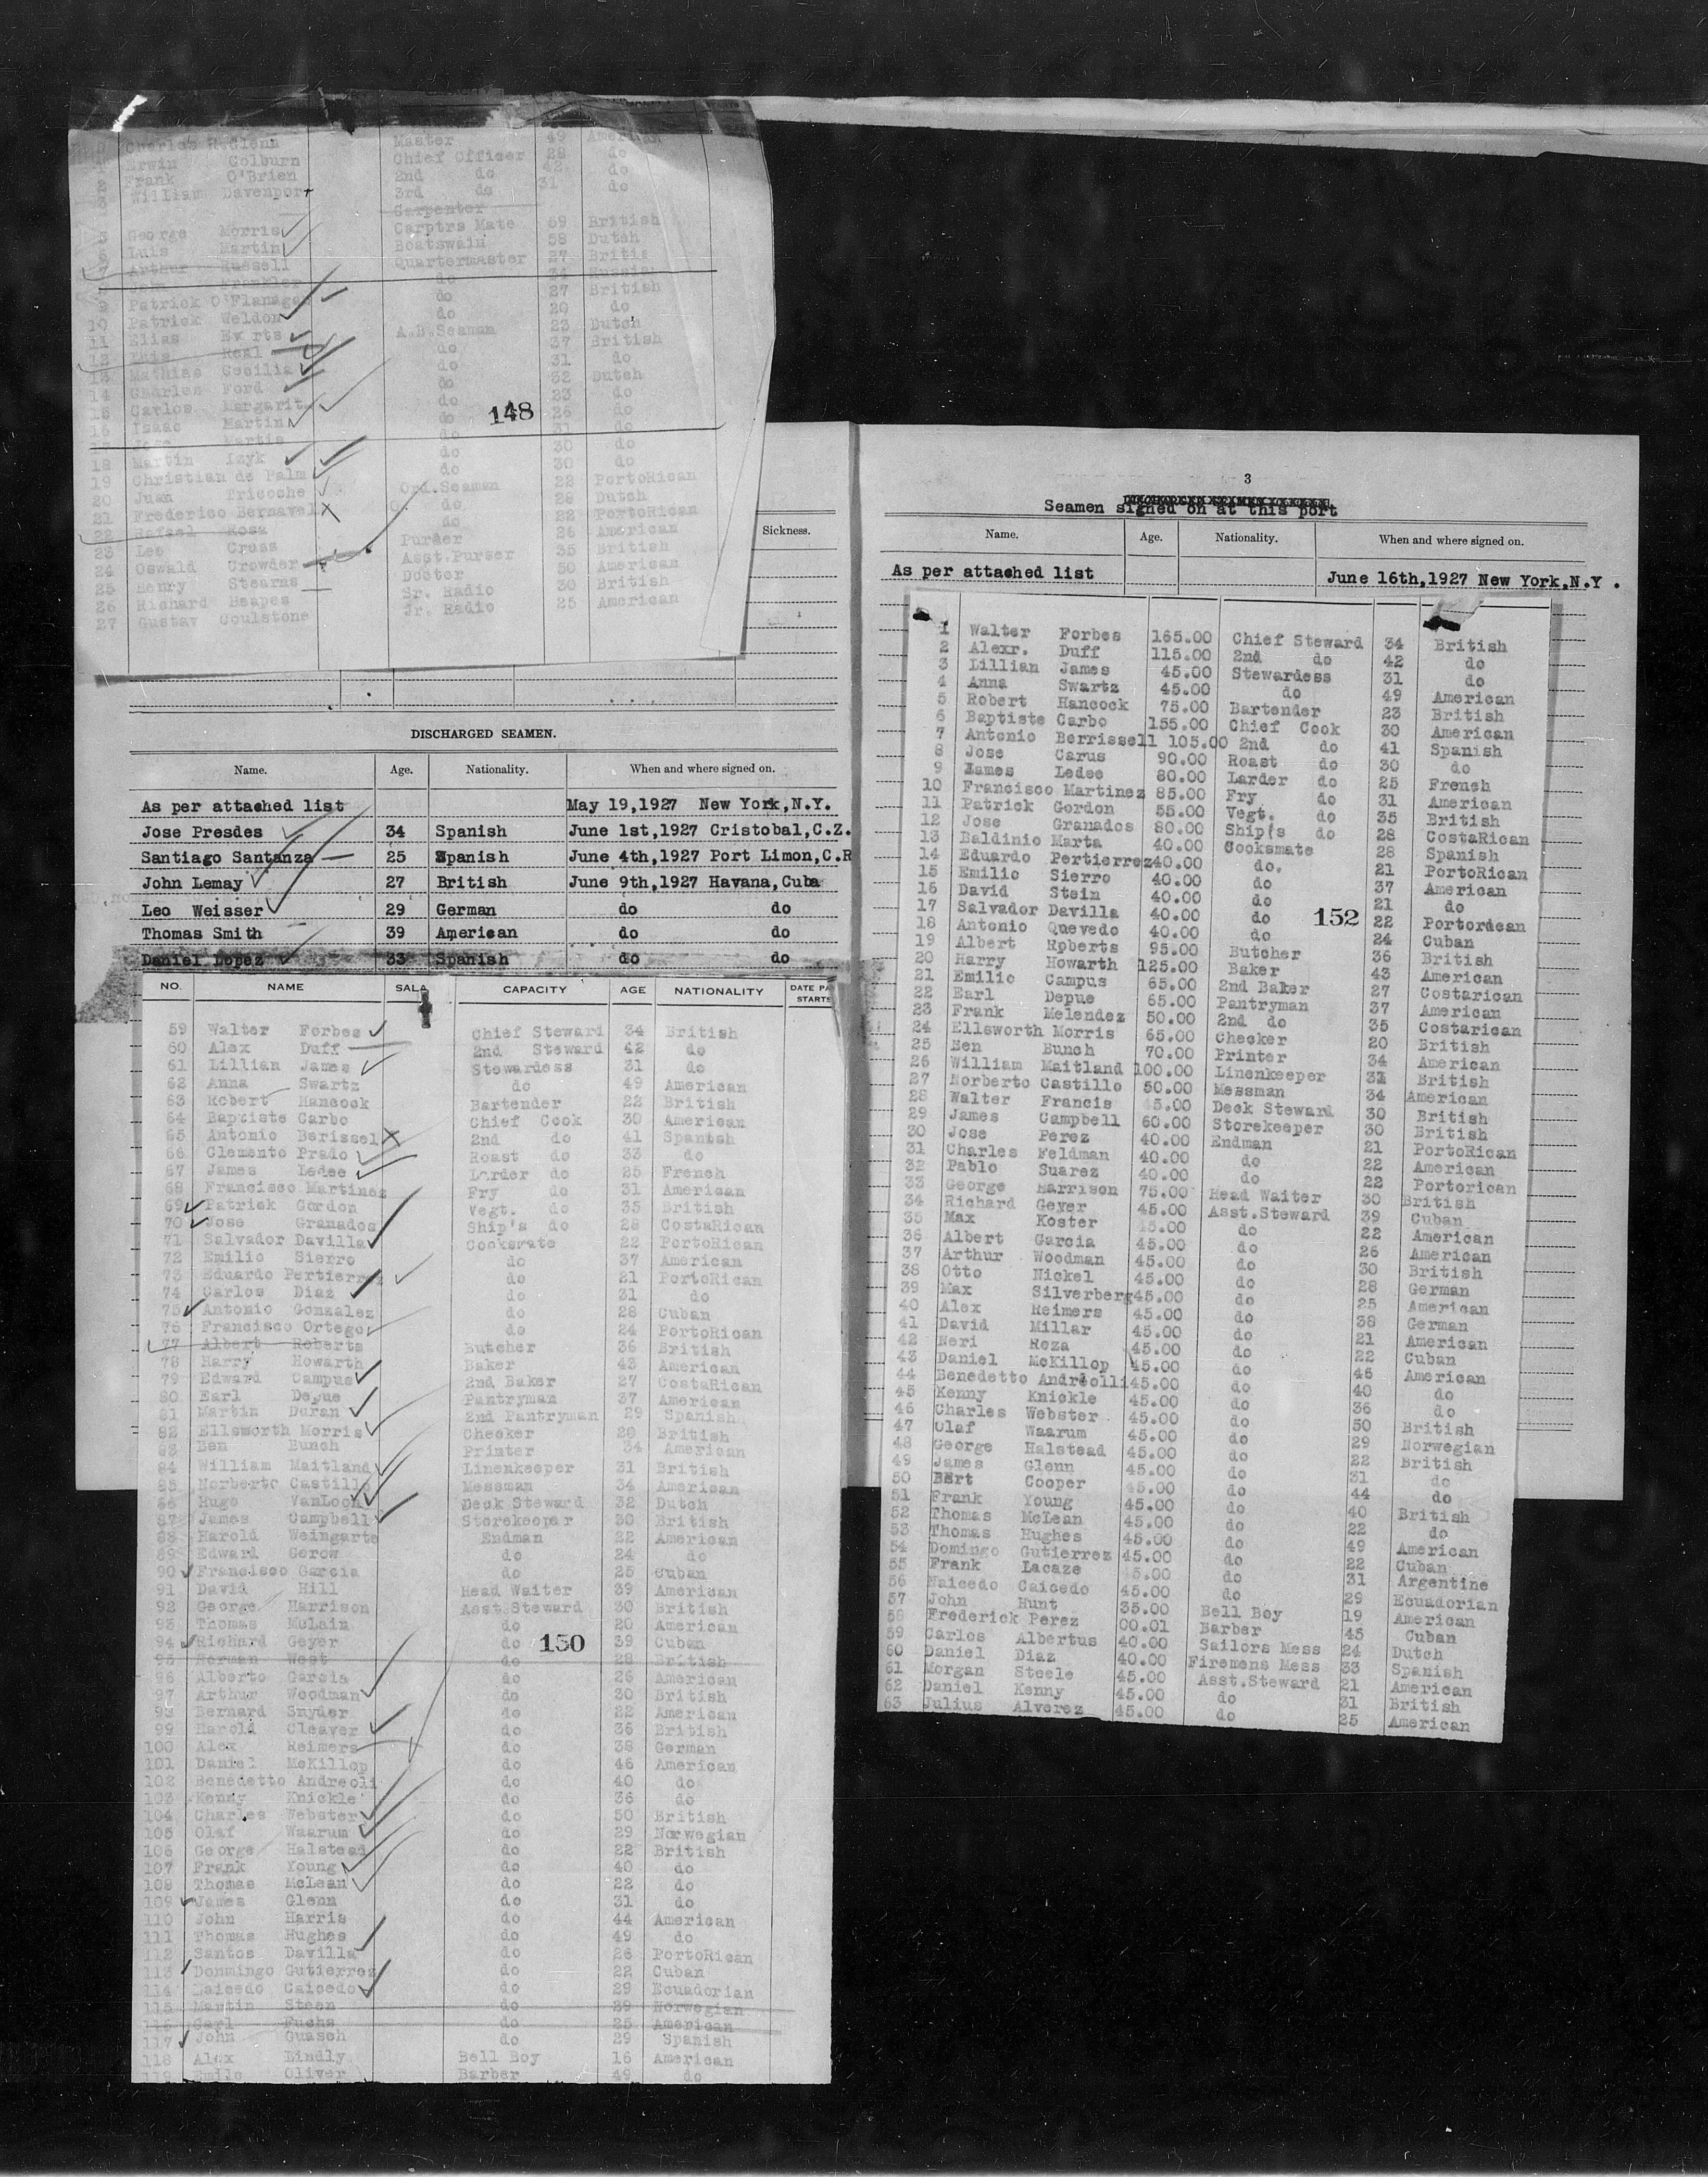 Charles H.Glenn Master American
1 Erwin Colburn Chief Officer 28 do
2 Frank O'Brien 2nd do 42 do
3 William Davenport 3rd do 31 do
Carpenter
5 George Morris Carptrs Mate 59 British
6 Luis Martin Boatswain 58 Dutch
7 Arthur Russell Quartermaster 27 Britis
do 34 Russian
9 Patrick O'Flanagan do 27 British
10 Patrick Weldon do 20 do
11 Elias Everts A.B.Seaman 23 Dutch
12 Real do 37 British
13 Mathias Cecilia do 31 do
14 Charles Ford do 32 Dutch
15 Carlos Margarita do 23 do
16 Isaac Martin do 26 do
148
Jose Martis do 31 do
18 Martin Izyk do 30 do
19 Christian de Palm do 30 do
20 Juan Tricoche Ord.Seaman 22 PortoRican
21 Frederico Bernavel do 28 Dutch
22 Rafael Rosa do 22 PortoRican
23 Leo Cross Purder 26 American
24 Oswald Crowder Asst.Purser 35 British
25 Henry Stearns Doctor 50 American
26 Richard Heapes Sr. Radio 30 British
27 Gustav Coulstone Jr. Radio 25 American
Sickness.
DISCHARGED SEAMEN.
Name. Age. Nationality. When and where signed on.
As per attached list May 19,1927 New York,N.Y.
Jose Presdes 34 Spanish June 1st,1927 Cristobal,C.Z.
Santiago Santanza 25 Spanish June 4th,1927 Port Limon,C.R
John Lemay 27 British June 9th,1927 Havana,Cuba
Leo Weisser 29 German do do
Thomas Smith 39 American do do
Daniel Lopez 33 Spanish do do
NO. NAME SALA CAPACITY AGE NATIONALITY DATE PA STARTS
59 Walter Forbes Chief Steward 34 British
60 Alex Duff 2nd Steward 42 do
61 Lillian James Stewardess 31 do
62 Anna Swartz do 49 American
63 Robert Hancock Bartender 22 British
64 Baptiste Carbo Chief Cook 30 American
65 Antonio Berissel 2nd do 41 Spanish
66 Clemente Prado Roast do 33 do
67 James Ledee Larder do 25 French
68 Francisco Martinez Fry do 31 American
69 Patrick Gordon Vegt. do 35 British
70 Jose Granados Ship's do 28 CostaRican
71 Salvador Davilla Cooksmate 22 PortoRican
72 Emilio Sierro do 37 American
73 Eduardo Pertierrez do 21 PortoRican
74 Carlos Diaz do 31 do
75 Antonio Gonzalez do 28 Cuban
76 Francisco Ortego do 24 PortoRican
77 Albert Roberts Butcher 36 British
78 Harry Howarth Baker 43 American
79 Edward Campus 2nd Baker 27 CostaRican
80 Earl Depue Pantryman 37 American
81 Martin Duran 2nd Pantryman 29 Spanish
82 Ellsworth Morris Checker 20 British
83 Ben Bunch Printer 34 American
84 William Maitland Linenkeeper 31 British
85 Norberto Castillo Messman 34 American
86 Hugo VanLoon Deck Steward 32 Dutch
87 James Campbell Storekeeper 30 British
88 Harold Weingarte Endman 22 American
89 Edward Gerow do 24 do
90 Francisco Garcia do 25 Cuban
91 David Hill Head Waiter 39 American
92 George Harrison Asst.Steward 30 British
93 Thomas McLain do 20 American
94 Richard Geyer do 39 Cuban
150
95 Norman West do 28 British
96 Alberto Garcia do 26 American
97 Arthur Woodman do 30 British
98 Bernard Snyder do 22 American
99 Harold Cleaver do 36 British
100 Alex Reimers do 38 German
101 Daniel McKillop do 46 American
102 Benedetto Andreoli do 40 do
103 Kenny Knickle do 36 do
104 Charles Webster do 50 British
105 Olaf Waarum do 29 Norwegian
106 George Halstead do 22 British
107 Frank Young do 40 do
108 Thomas McLean do 22 do
109 James Glenn do 31 do
110 John Harris do 44 American
111 Thomas Hughes do 49 do
112 Santos Davilla do 26 PortoRican
113 Donmingo Gutierrez do 22 Cuban
114 Naicedo Caicedo do 29 Ecuadorian
115 Martin Steen do 29 Norwegian
116 Carl Fuchs do 25 American
117 John Guasch do 29 Spanish
118 Alex Lindly Bell Boy 16 American
119 Emile Oliver Barber 49 do
3
Seamen signed on at this port
Name. Age. Nationality. When and where signed on.
As per attached list June 16th,1927 New York,N.Y .
1 Walter Forbes 165.00 Chief Steward 34 British
2 Alexr. Duff 115.00 2nd do 42 do
3 Lillian James 45.00 Stewardess 31 do
4 Anna Swartz 45.00 do 49 American
5 Robert Hancock 75.00 Bartender 23 British
6 Baptiste Carbo 155.00 Chief Cook 30 American
7 Antonio Berrissell 105.00 2nd do 41 Spanish
8 Jose Carus 90.00 Roast do 30 do
9 James Ledee 80.00 Larder do 25 French
10 Francisco Martinez 85.00 Fry do 31 American
11 Patrick Gordon 55.00 Vegt. do 35 British
12 Jose Granados 80.00 Ship's do 28 CostaRican
13 Baldinio Marta 40.00 Cooksmate 28 Spanish
14 Eduardo Pertierrez 40.00 do. 21 PortoRican
15 Emilio Sierro 40.00 do 37 American
16 David Stein 40.00 do 21 do
17 Salvador Davilla 40.00 do 22 Portorican
152
18 Antonio Quevedo 40.00 do 24 Cuban
19 Albert Roberts 95.00 Butcher 36 British
20 Harry Howarth 125.00 Baker 43 American
21 Emilio Campus 65.00 2nd Baker 27 Costarican
22 Earl Depue 65.00 Pantryman 37 American
23 Frank Melendez 50.00 2nd do 35 Costarican
24 Ellsworth Morris 65.00 Checker 20 British
25 Ben Bunch 70.00 Printer 34 American
26 William Maitland 100.00 Linenkeeper 31 British
27 Norberto Castillo 50.00 Messman 34 American
28 Walter Francis 45.00 Deck Steward 30 British
29 James Campbell 60.00 Storekeeper 30 British
30 Jose Perez 40.00 Endman 21 PortoRican
31 Charles Feldman 40.00 do 22 American
32 Pablo Suarez 40.00 do 22 Portorican
33 George Harrison 75.00 Head Waiter 30 British
34 Richard Geyer 45.00 Asst.Steward 39 Cuban
35 Max Koster 45.00 do 22 American
36 Albert Garcia 45.00 do 26 American
37 Arthur Woodman 45.00 do 30 British
38 Otto Nickel 45.00 do 28 German
39 Max Silverberg 45.00 do 25 American
40 Alex Reimers 45.00 do 38 German
41 David Millar 45.00 do 21 American
42 Neri Roza 45.00 do 22 Cuban
43 Daniel McKillop 45.00 do 46 American
44 Benedetto Andreolli 45.00 do 40 do
45 Kenny Knickle 45.00 do 36 do
46 Charles Webster 45.00 do 50 British
47 Olaf Waarum 45.00 do 29 Norwegian
48 George Halstead 45.00 do 22 British
49 James Glenn 45.00 do 31 do
50 Bert Cooper 45.00 do 44 do
51 Frank Young 45.00 do 40 British
52 Thomas McLean 45.00 do 22 do
53 Thomas Hughes 45.00 do 49 American
54 Domingo Gutierrez 45.00 do 22 Cuban
55 Frank Lacaze 45.00 do 31 Argentine
56 Naicedo Caicedo 45.00 do 29 Ecuadorian
57 John Hunt 35.00 Bell Boy 19 American
58 Frederick Perez 00.01 Barber 45 Cuban
59 Carlos Albertus 40.00 Sailors Mess 24 Dutch
60 Daniel Diaz 40.00 Firemens Mess 33 Spanish
61 Morgan Steele 45.00 Asst.Steward 21 American
62 Daniel Kenny 45.00 do 31 British
63 Julius Alverez 45.00 do 25 American